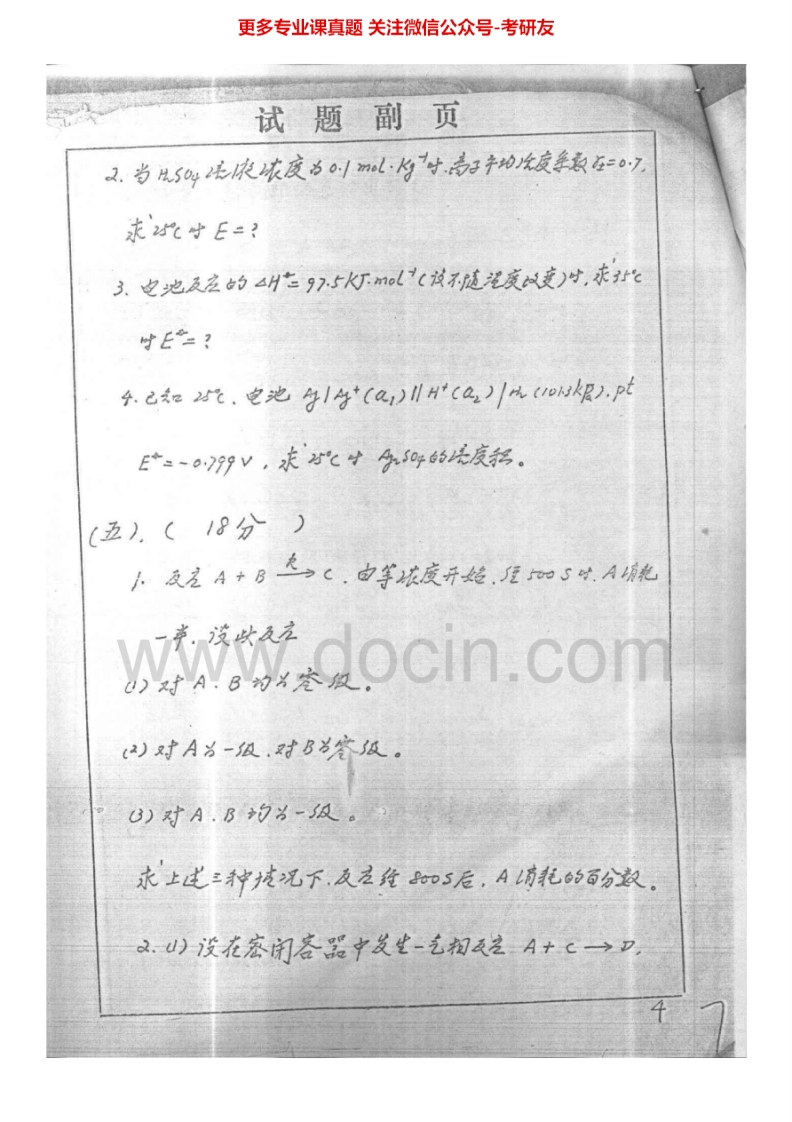 更多专业课真题 关注微信公众号-考研友
试题副页
2. 当 H₂SO₄ 溶液浓度为 0.1 mol·Kg⁻¹ 时, 离子平均活度系数 γ± = 0.7,
求 25℃ 时 E = ?
3. 电池反应的 ΔH° = 97.5 KJ·mol⁻¹ (设不随温度改变) 时, 求 35℃
时 E° = ?
4. 已知 25℃, 电池 Ag | Ag⁺(a₁) || H⁺(a₂) | H₂ (101.3kPa), pt
E° = -0.799 V, 求 25℃ 时 Ag₂SO₄ 的活度积。
(五). ( 18分 )
1. 反应 A + B —k→ C, 由等浓度开始, 经 500 S 时, A 消耗
一半, 设此反应
(1) 对 A. B 均为零级。
(2) 对 A 为一级, 对 B 为零级。
(3) 对 A. B 均为一级。
求上述三种情况下, 反应经 800S 后, A 消耗的百分数。
2. (1) 设在密闭容器中发生一气相反应 A + C → D,
4
www.docin.com